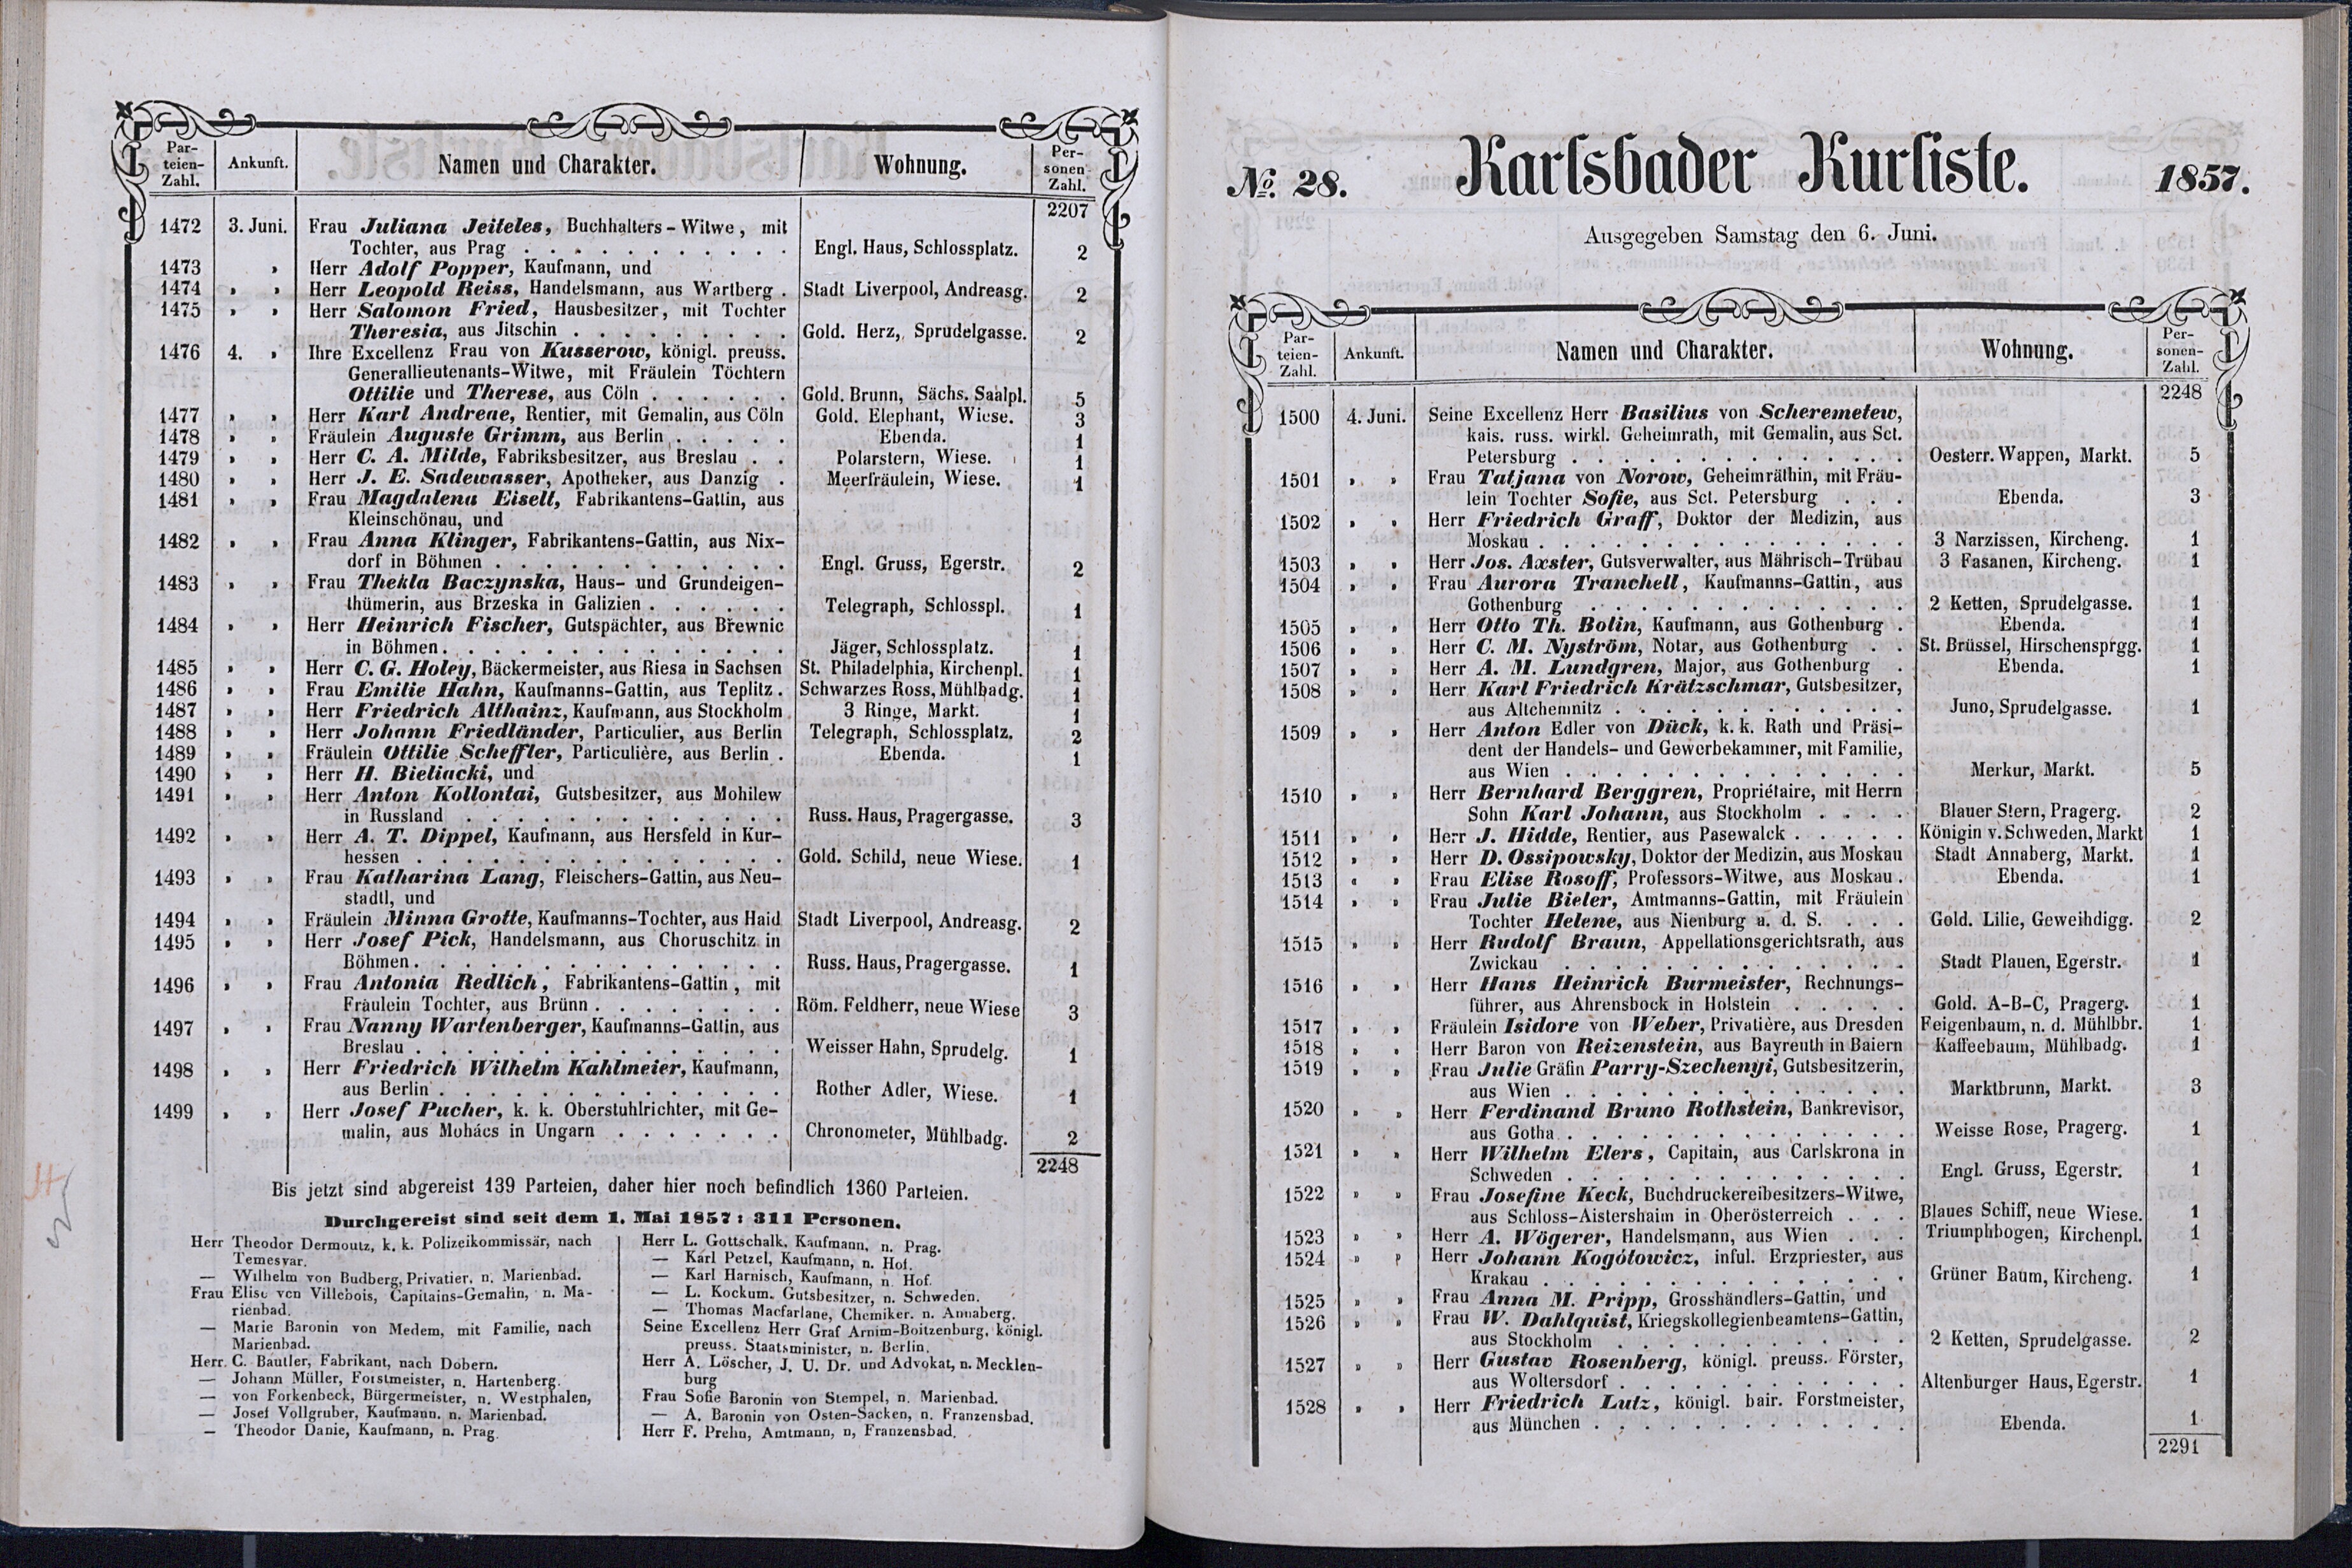 Par-
teien-
Zahl.
Ankunft.
Namen und Charakter.
Wohnung.
Per-
sonen-
Zahl.
2207
1472 3. Juni. Frau Juliana Jeiteles, Buchhalters-Witwe, mit
Tochter, aus Prag . . . . . . . . . . Engl. Haus, Schlossplatz. 2
1473 » Herr Adolf Popper, Kaufmann, und
1474 » » Herr Leopold Reiss, Handelsmann, aus Wartberg . Stadt Liverpool, Andreasg. 2
1475 » » Herr Salomon Fried, Hausbesitzer, mit Tochter
Theresia, aus Jitschin . . . . . . . . . Gold. Herz, Sprudelgasse. 2
1476 4. » Ihre Excellenz Frau von Kusserow, königl. preuss.
Generallieutenants-Witwe, mit Fräulein Töchtern
Ottilie und Therese, aus Cöln . . . . . . Gold. Brunn, Sächs. Saalpl. 5
1477 » » Herr Karl Andreae, Rentier, mit Gemalin, aus Cöln Gold. Elephant, Wiese. 3
1478 » » Fräulein Auguste Grimm, aus Berlin . . . . . Ebenda. 1
1479 » » Herr C. A. Milde, Fabriksbesitzer, aus Breslau . . Polarstern, Wiese. 1
1480 » » Herr J. E. Sadewasser, Apotheker, aus Danzig . Meerfräulein, Wiese. 1
1481 » » Frau Magdalena Eiselt, Fabrikantens-Gattin, aus
Kleinschönau, und
1482 » » Frau Anna Klinger, Fabrikantens-Gattin, aus Nix-
dorf in Böhmen . . . . . . . . . . . . Engl. Gruss, Egerstr. 2
1483 » » Frau Thekla Baczynska, Haus- und Grundeigen-
thümerin, aus Brzeska in Galizien . . . . . . Telegraph, Schlosspl. 1
1484 » » Herr Heinrich Fischer, Gutspächter, aus Břewnic
in Böhmen . . . . . . . . . . . . . . Jäger, Schlossplatz. 1
1485 » » Herr C. G. Holey, Bäckermeister, aus Riesa in Sachsen St. Philadelphia, Kirchenpl. 1
1486 » » Frau Emilie Hahn, Kaufmanns-Gattin, aus Teplitz . Schwarzes Ross, Mühlbadg. 1
1487 » » Herr Friedrich Althainz, Kaufmann, aus Stockholm 3 Ringe, Markt. 1
1488 » » Herr Johann Friedländer, Particulier, aus Berlin Telegraph, Schlossplatz. 2
1489 » » Fräulein Ottilie Scheffler, Particulière, aus Berlin . Ebenda. 1
1490 » » Herr H. Bieliacki, und
1491 » » Herr Anton Kollontai, Gutsbesitzer, aus Mohilew
in Russland . . . . . . . . . . . . . Russ. Haus, Pragergasse. 3
1492 » » Herr A. T. Dippel, Kaufmann, aus Hersfeld in Kur-
hessen . . . . . . . . . . . . . . . Gold. Schild, neue Wiese. 1
1493 » » Frau Katharina Lang, Fleischers-Gattin, aus Neu-
stadtl, und
1494 » » Fräulein Minna Grotte, Kaufmanns-Tochter, aus Haid Stadt Liverpool, Andreasg. 2
1495 » » Herr Josef Pick, Handelsmann, aus Choruschitz in
Böhmen . . . . . . . . . . . . . . . Russ. Haus, Pragergasse. 1
1496 » » Frau Antonia Redlich, Fabrikantens-Gattin, mit
Fräulein Tochter, aus Brünn . . . . . . . . Röm. Feldherr, neue Wiese 3
1497 » » Frau Nanny Wartenberger, Kaufmanns-Gattin, aus
Breslau . . . . . . . . . . . . . . . Weisser Hahn, Sprudelg. 1
1498 » » Herr Friedrich Wilhelm Kahlmeier, Kaufmann,
aus Berlin . . . . . . . . . . . . . . Rother Adler, Wiese. 1
1499 » » Herr Josef Pucher, k. k. Oberstuhlrichter, mit Ge-
malin, aus Mohács in Ungarn . . . . . . . Chronometer, Mühlbadg. 2
2248
Bis jetzt sind abgereist 139 Parteien, daher hier noch befindlich 1360 Parteien.
Durchgereist sind seit dem 1. Mai 1857: 311 Personen.
Herr Theodor Dermoutz, k. k. Polizeikommissär, nach
Temesvar.
— Wilhelm von Budberg, Privatier, n. Marienbad.
Frau Elise von Villebois, Capitains-Gemalin, n. Ma-
rienbad.
— Marie Baronin von Medem, mit Familie, nach
Marienbad.
Herr C. Bautler, Fabrikant, nach Dobern.
— Johann Müller, Forstmeister, n. Hartenberg.
— von Forkenbeck, Bürgermeister, n. Westphalen,
— Josef Vollgruber, Kaufmann, n. Marienbad.
— Theodor Danie, Kaufmann, n. Prag.
Herr L. Gottschalk, Kaufmann, n. Prag.
— Karl Petzel, Kaufmann, n. Hof.
— Karl Harnisch, Kaufmann, n. Hof.
— L. Kockum, Gutsbesitzer, n. Schweden.
— Thomas Macfarlane, Chemiker, n. Annaberg.
Seine Excellenz Herr Graf Arnim-Boitzenburg, königl.
preuss. Staatsminister, n. Berlin.
Herr A. Löscher, J. U. Dr. und Advokat, n. Mecklen-
burg
Frau Sofie Baronin von Stempel, n. Marienbad.
— A. Baronin von Osten-Sacken, n. Franzensbad.
Herr F. Prehn, Amtmann, n, Franzensbad.
No. 28. Karlsbader Kurliste. 1857.
Ausgegeben Samstag den 6. Juni.
Par-
teien-
Zahl.
Ankunft.
Namen und Charakter.
Wohnung.
Per-
sonen-
Zahl.
2248
1500 4. Juni. Seine Excellenz Herr Basilius von Scheremetew,
kais. russ. wirkl. Geheimrath, mit Gemalin, aus Sct.
Petersburg . . . . . . . . . . . . . . Oesterr. Wappen, Markt. 5
1501 » » Frau Tatjana von Norow, Geheimräthin, mit Fräu-
lein Tochter Sofie, aus Sct. Petersburg . . . Ebenda. 3
1502 » » Herr Friedrich Graff, Doktor der Medizin, aus
Moskau . . . . . . . . . . . . . . . 3 Narzissen, Kircheng. 1
1503 » » Herr Jos. Axster, Gutsverwalter, aus Mährisch-Trübau 3 Fasanen, Kircheng. 1
1504 » » Frau Aurora Tranchell, Kaufmanns-Gattin, aus
Gothenburg . . . . . . . . . . . . . 2 Ketten, Sprudelgasse. 1
1505 » » Herr Otto Th. Bolin, Kaufmann, aus Gothenburg . Ebenda. 1
1506 » » Herr C. M. Nyström, Notar, aus Gothenburg . . St. Brüssel, Hirschensprgg. 1
1507 » » Herr A. M. Lundgren, Major, aus Gothenburg . Ebenda. 1
1508 » » Herr Karl Friedrich Krätzschmar, Gutsbesitzer,
aus Altchemnitz . . . . . . . . . . . . Juno, Sprudelgasse. 1
1509 » » Herr Anton Edler von Dück, k. k. Rath und Präsi-
dent der Handels- und Gewerbekammer, mit Familie,
aus Wien . . . . . . . . . . . . . . Merkur, Markt. 5
1510 » » Herr Bernhard Berggren, Propriétaire, mit Herrn
Sohn Karl Johann, aus Stockholm . . . . Blauer Stern, Pragerg. 2
1511 » » Herr J. Hidde, Rentier, aus Pasewalck . . . . . Königin v. Schweden, Markt 1
1512 » » Herr D. Ossipowsky, Doktor der Medizin, aus Moskau Stadt Annaberg, Markt. 1
1513 « » Frau Elise Rosoff, Professors-Witwe, aus Moskau . Ebenda. 1
1514 » » Frau Julie Bieler, Amtmanns-Gattin, mit Fräulein
Tochter Helene, aus Nienburg a. d. S. . . . Gold. Lilie, Geweihdigg. 2
1515 » » Herr Rudolf Braun, Appellationsgerichtsrath, aus
Zwickau . . . . . . . . . . . . . . Stadt Plauen, Egerstr. 1
1516 » » Herr Hans Heinrich Burmeister, Rechnungs-
führer, aus Ahrensbock in Holstein . . . . . Gold. A-B-C, Pragerg. 1
1517 » » Fräulein Isidore von Weber, Privatière, aus Dresden Feigenbaum, n. d. Mühlbbr. 1
1518 » » Herr Baron von Reizenstein, aus Bayreuth in Baiern Kaffeebaum, Mühlbadg. 1
1519 » » Frau Julie Gräfin Parry-Szechenyi, Gutsbesitzerin,
aus Wien . . . . . . . . . . . . . . Marktbrunn, Markt. 3
1520 » » Herr Ferdinand Bruno Rothstein, Bankrevisor,
aus Gotha . . . . . . . . . . . . . . Weisse Rose, Pragerg. 1
1521 » » Herr Wilhelm Elers, Capitain, aus Carlskrona in
Schweden . . . . . . . . . . . . . . Engl. Gruss, Egerstr. 1
1522 » » Frau Josefine Keck, Buchdruckereibesitzers-Witwe,
aus Schloss-Aistershaim in Oberösterreich . . . Blaues Schiff, neue Wiese. 1
1523 » » Herr A. Wögerer, Handelsmann, aus Wien . . . Triumphbogen, Kirchenpl. 1
1524 » » Herr Johann Kogółowicz, inful. Erzpriester, aus
Krakau . . . . . . . . . . . . . . . Grüner Baum, Kircheng. 1
1525 » » Frau Anna M. Pripp, Grosshändlers-Gattin, und
1526 » » Frau W. Dahlquist, Kriegskollegienbeamtens-Gattin,
aus Stockholm . . . . . . . . . . . . 2 Ketten, Sprudelgasse. 2
1527 » » Herr Gustav Rosenberg, königl. preuss. Förster,
aus Woltersdorf . . . . . . . . . . . . Altenburger Haus, Egerstr. 1
1528 » » Herr Friedrich Lutz, königl. bair. Forstmeister,
aus München . . . . . . . . . . . . . Ebenda. 1
2291